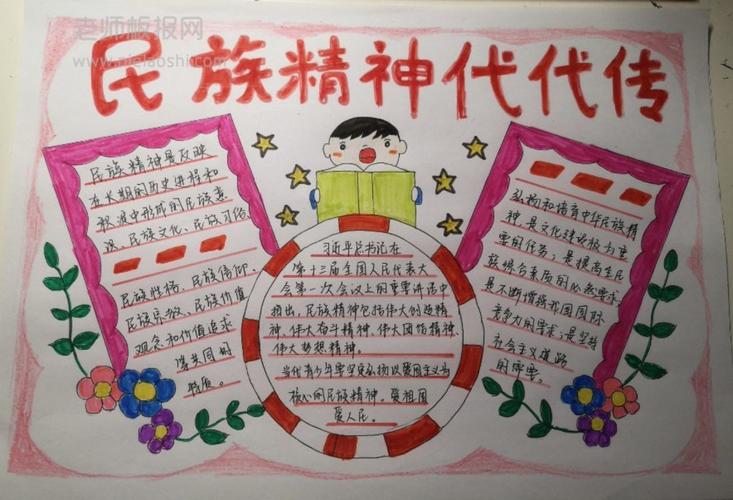 老师板报网
民族精神代代传
民族精神是反映
在长期的历史进程和
积淀中形成的民族意
识、民族文化、民族习俗、
民族性格、民族信仰、
民族宗教、民族价值
观念和价值追求
等共同的
特质。
习近平总书记在
第十三届全国人民代表大
会第一次会议上的重要讲话中
指出，民族精神包括伟大创造精
神、伟大奋斗精神、伟大团结精神、
伟大梦想精神。
当代青少年要坚定弘扬以爱国主义为
核心的民族精神。爱祖国
爱人民。
弘扬和培育中华民族精
神，是文化建设极为重
要的任务；是提高全民
族综合素质的必然要求
是不断增强我国国际
竞争力的要求；是坚持
社会主义道路
的需要。